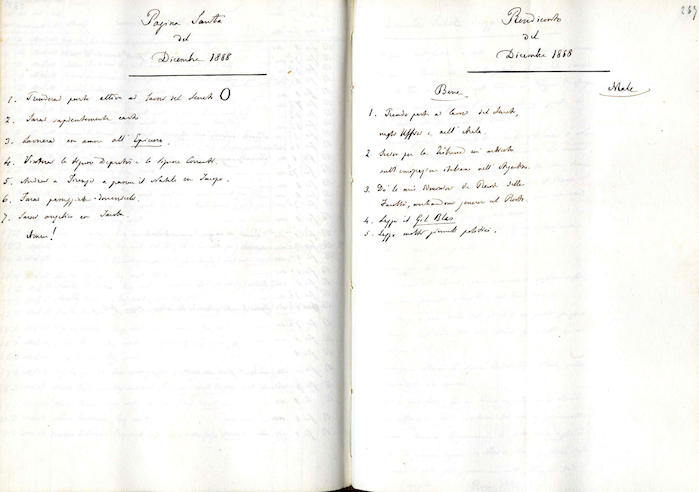 Pagina Santa
del
Dicembre 1888
1. Prenderai parte attiva ai lavori del Senato O
2. Sarai sapientemente casto
3. Lavorerai con amore all' Epicuro.
4. Visiterai le Signore Deputatesse e le Signore
5. Andrai a Firenze a passare il Natale in
6. Farai passeggiate domenicali.
7. Sarai angelico con
Amen!
289
Rendiconto
del
Dicembre 1888
Bene
Male
1. Prendo parte ai lavori del Senato,
negli Uffici e nell' Aula.
2. Scrivo per la Tribuna un articolo
sull' emigrazione italiana nell' Argentina.
3. Do le mie dimissioni da Preside della
Facoltà,
4. Leggo il Gil Blas
5. Leggo molti giornali politici.